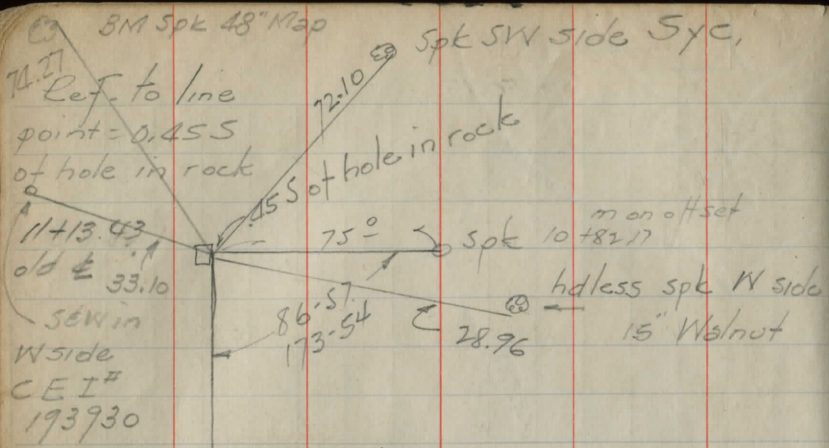 BM Spk 48" Map
Spk SW side Syc,
74.27
72.10
Ref. to line
point = 0.45 S
of hole in rock
.45 S of hole in rock
11+13.43
old ℄
33.10
75º
mon offset
Spk 10+82.17
hdless spk W side
15" Walnut
86-57
173-54
28.96
S&W in
W side
C E I #
193930